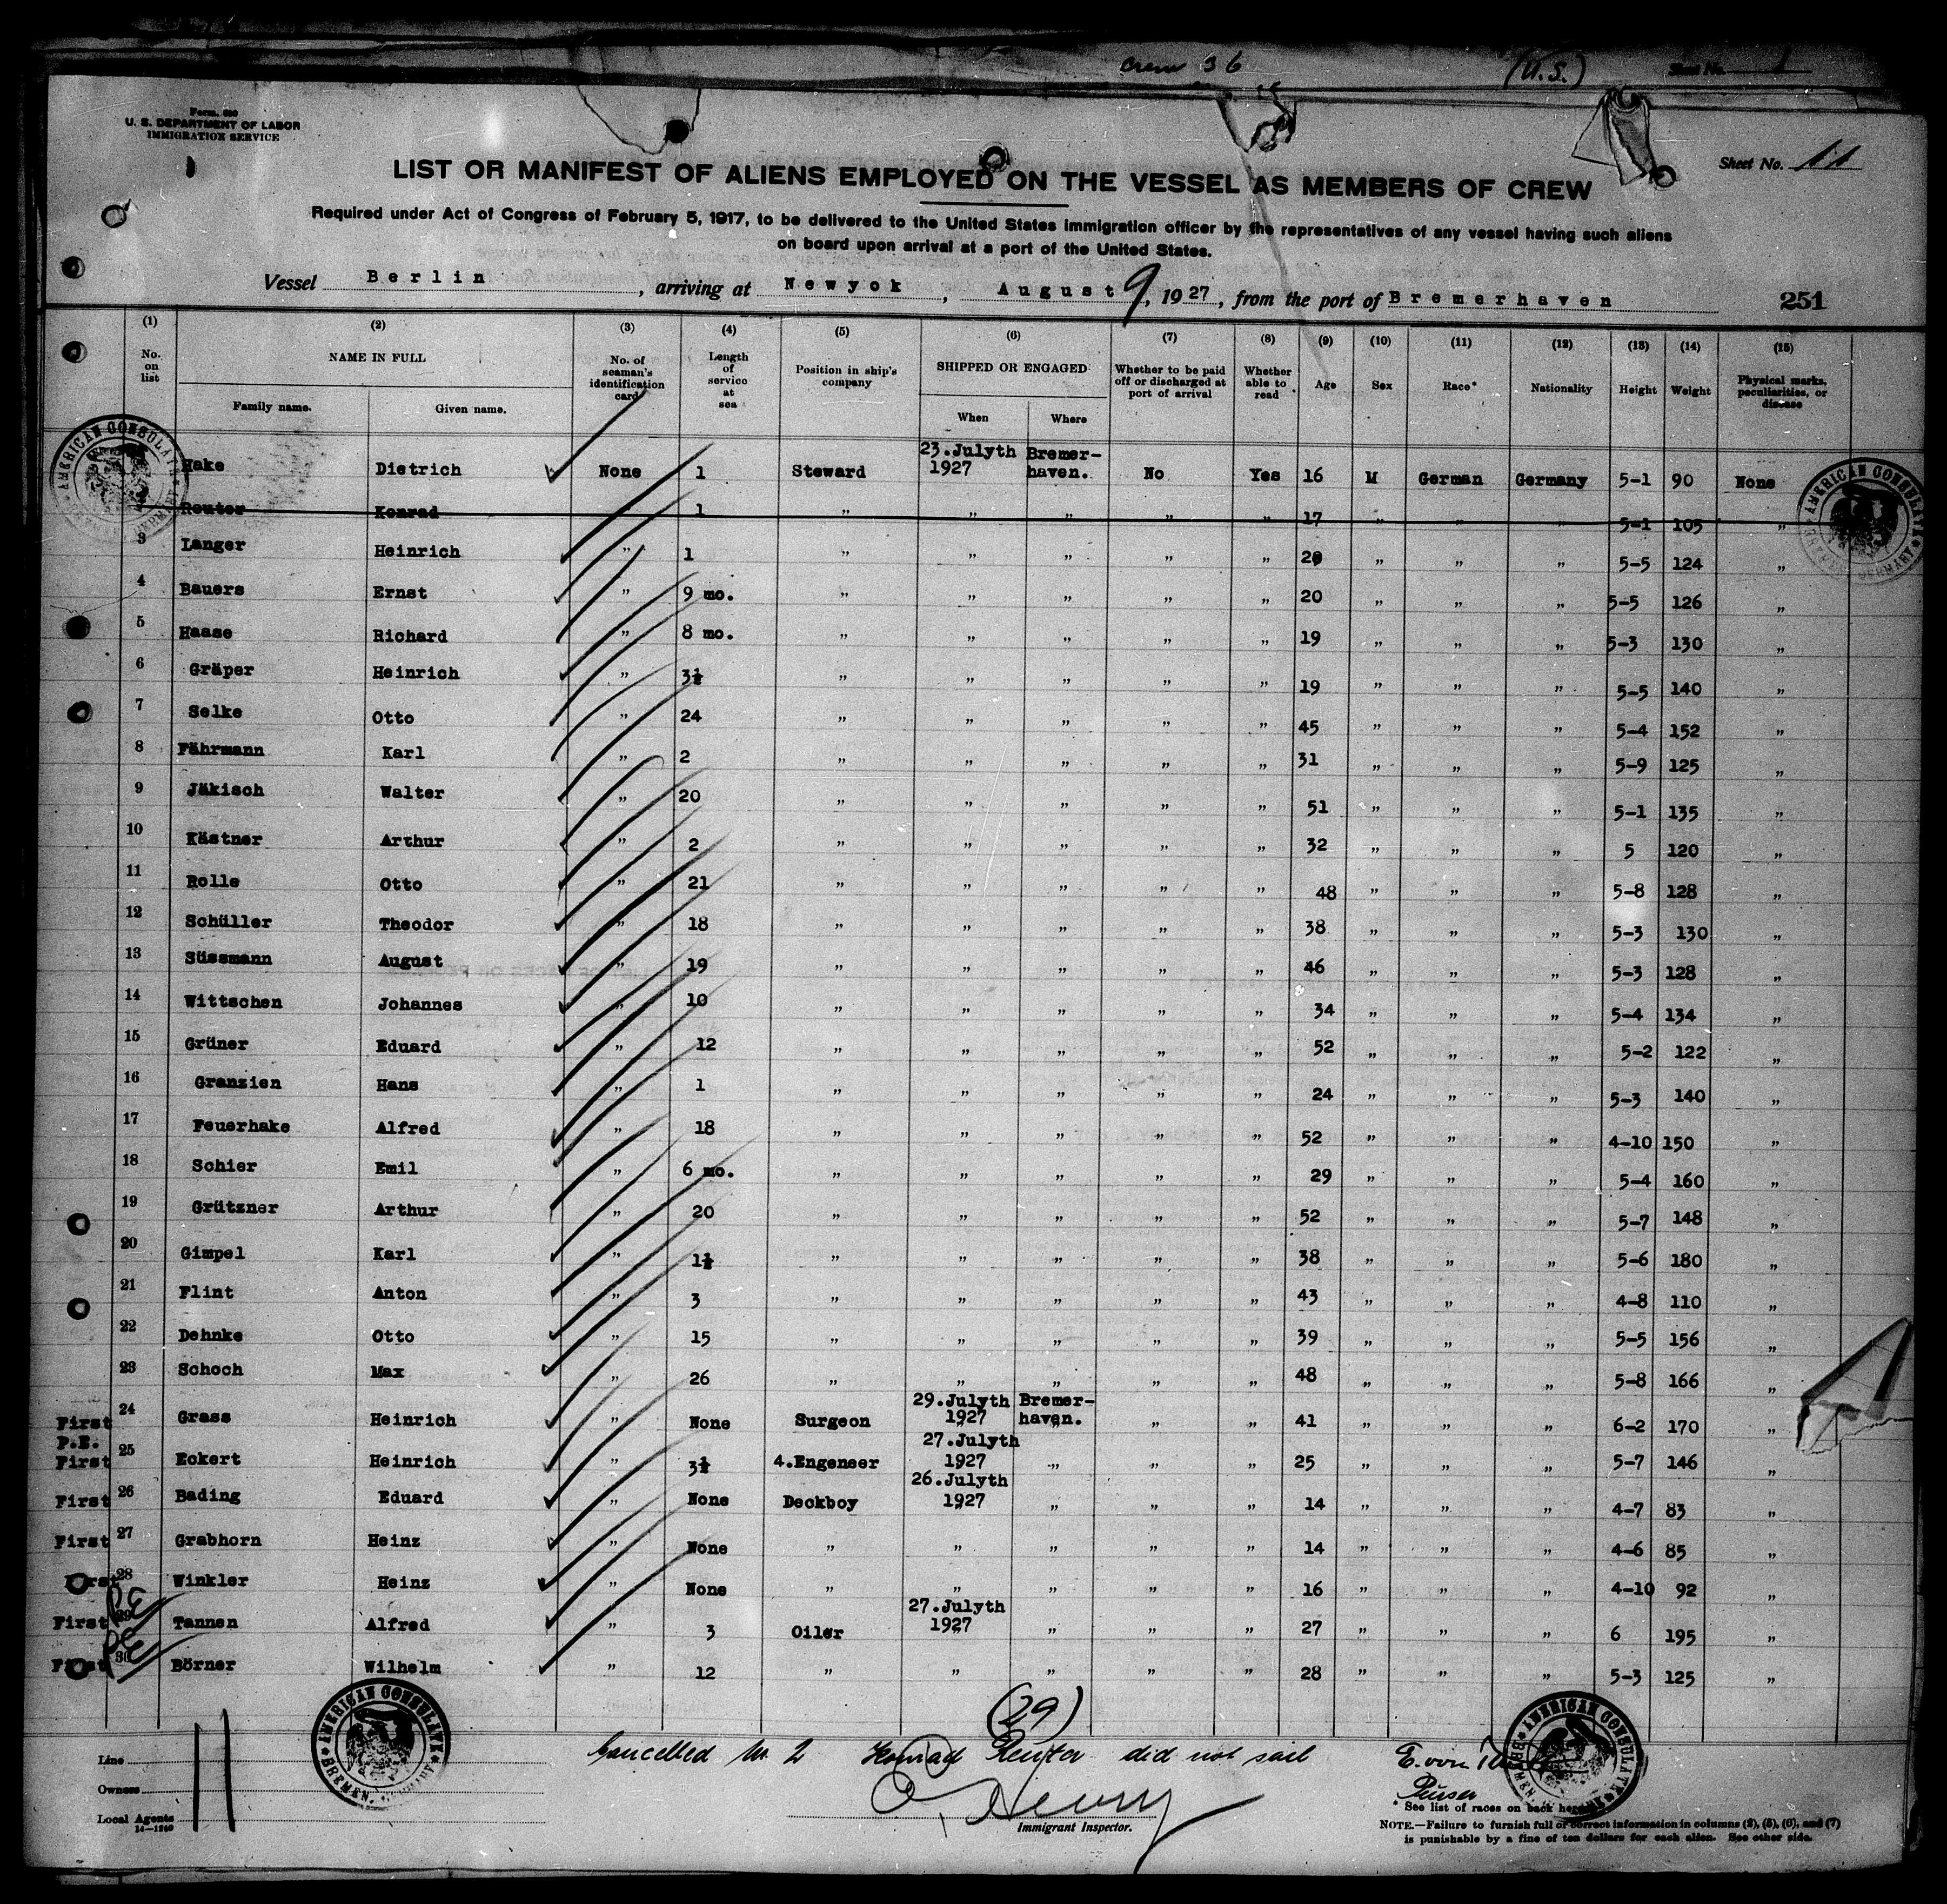 crew 36 (U.S.) Sheet No. 1
Form 680
U. S. DEPARTMENT OF LABOR
IMMIGRATION SERVICE
Sheet No. 11
LIST OR MANIFEST OF ALIENS EMPLOYED ON THE VESSEL AS MEMBERS OF CREW
Required under Act of Congress of February 5, 1917, to be delivered to the United States immigration officer by the representatives of any vessel having such aliens
on board upon arrival at a port of the United States.
Vessel Berlin, arriving at Newyok, August 9, 1927, from the port of Bremerhaven 251
(1) (2) (3) (4) (5) (6) (7) (8) (9) (10) (11) (12) (13) (14) (15)
No. on list NAME IN FULL Family name. Given name. No. of seaman's identification card Length of service at sea Position in ship's company SHIPPED OR ENGAGED When Where Whether to be paid off or discharged at port of arrival Whether able to read Age Sex Race* Nationality Height Weight Physical marks, peculiarities, or disease
Hake Dietrich None 1 Steward 23.Julyth 1927 Bremer-haven. No Yes 16 M German Germany 5-1 90 None
Reuter Konrad 1 " " " " " 17 " " " 5-1 105 "
3 Langer Heinrich " 1 " " " " " 20 " " " 5-5 124 "
4 Bauers Ernst " 9 mo. " " " " " 20 " " " 5-5 126 "
5 Haase Richard " 8 mo. " " " " " 19 " " " 5-3 130 "
6 Gräper Heinrich " 3½ " " " " " 19 " " " 5-5 140 "
7 Selke Otto " 24 " " " " " 45 " " " 5-4 152 "
8 Fährmann Karl " 2 " " " " " 31 " " " 5-9 125 "
9 Jäkisch Walter " 20 " " " " " 51 " " " 5-1 135 "
10 Kästner Arthur " 2 " " " " " 32 " " " 5 120 "
11 Rolle Otto " 21 " " " " " 48 " " " 5-8 128 "
12 Schüller Theodor " 18 " " " " " 38 " " " 5-3 130 "
13 Süssmann August " 19 " " " " " 46 " " " 5-3 128 "
14 Wittschen Johannes " 10 " " " " " 34 " " " 5-4 134 "
15 Grüner Eduard " 12 " " " " " 52 " " " 5-2 122 "
16 Granzien Hans " 1 " " " " " 24 " " " 5-3 140 "
17 Feuerhake Alfred " 18 " " " " " 52 " " " 4-10 150 "
18 Schier Emil " 6 mo. " " " " " 29 " " " 5-4 160 "
19 Grützner Arthur " 20 " " " " " 52 " " " 5-7 148 "
20 Gimpel Karl " 1½ " " " " " 38 " " " 5-6 180 "
21 Flint Anton " 3 " " " " " 43 " " " 4-8 110 "
22 Dehnke Otto " 15 " " " " " 39 " " " 5-5 156 "
23 Schoch Max " 26 " " " " " 48 " " " 5-8 166 "
First 24 Grass Heinrich " None Surgeon 29.Julyth 1927 Bremer-haven. " " 41 " " " 6-2 170 "
P.E. First 25 Eckert Heinrich " 3½ 4.Engeneer 27.Julyth 1927 " " " 25 " " " 5-7 146 "
First 26 Bading Eduard " None Deckboy 26.Julyth 1927 " " " 14 " " " 4-7 83 "
First 27 Grabhorn Heinz " None " " " " " 14 " " " 4-6 85 "
First 28 Winkler Heinz " None " " " " " 16 " " " 4-10 92 "
PE First 29 Tannen Alfred " 3 Oiler 27.Julyth 1927 " " " 27 " " " 6 195 "
PE First 30 Börner Wilhelm " 12 " " " " " 28 " " " 5-3 125 "
(29)
Cancelled No. 2 Konrad Reuter did not sail
E. von
Purser
Line
Owners
Local Agents
14—1240
11
O. Henry
Immigrant Inspector.
* See list of races on back hereof.
NOTE.—Failure to furnish full or correct information in columns (2), (5), (6), and (7)
is punishable by a fine of ten dollars for each alien. See other side.
AMERICAN CONSULATE BREMEN, GERMANY
AMERICAN CONSULATE BREMEN, GERMANY
AMERICAN CONSULATE BREMEN, GERMANY
AMERICAN CONSULATE BREMEN, GERMANY